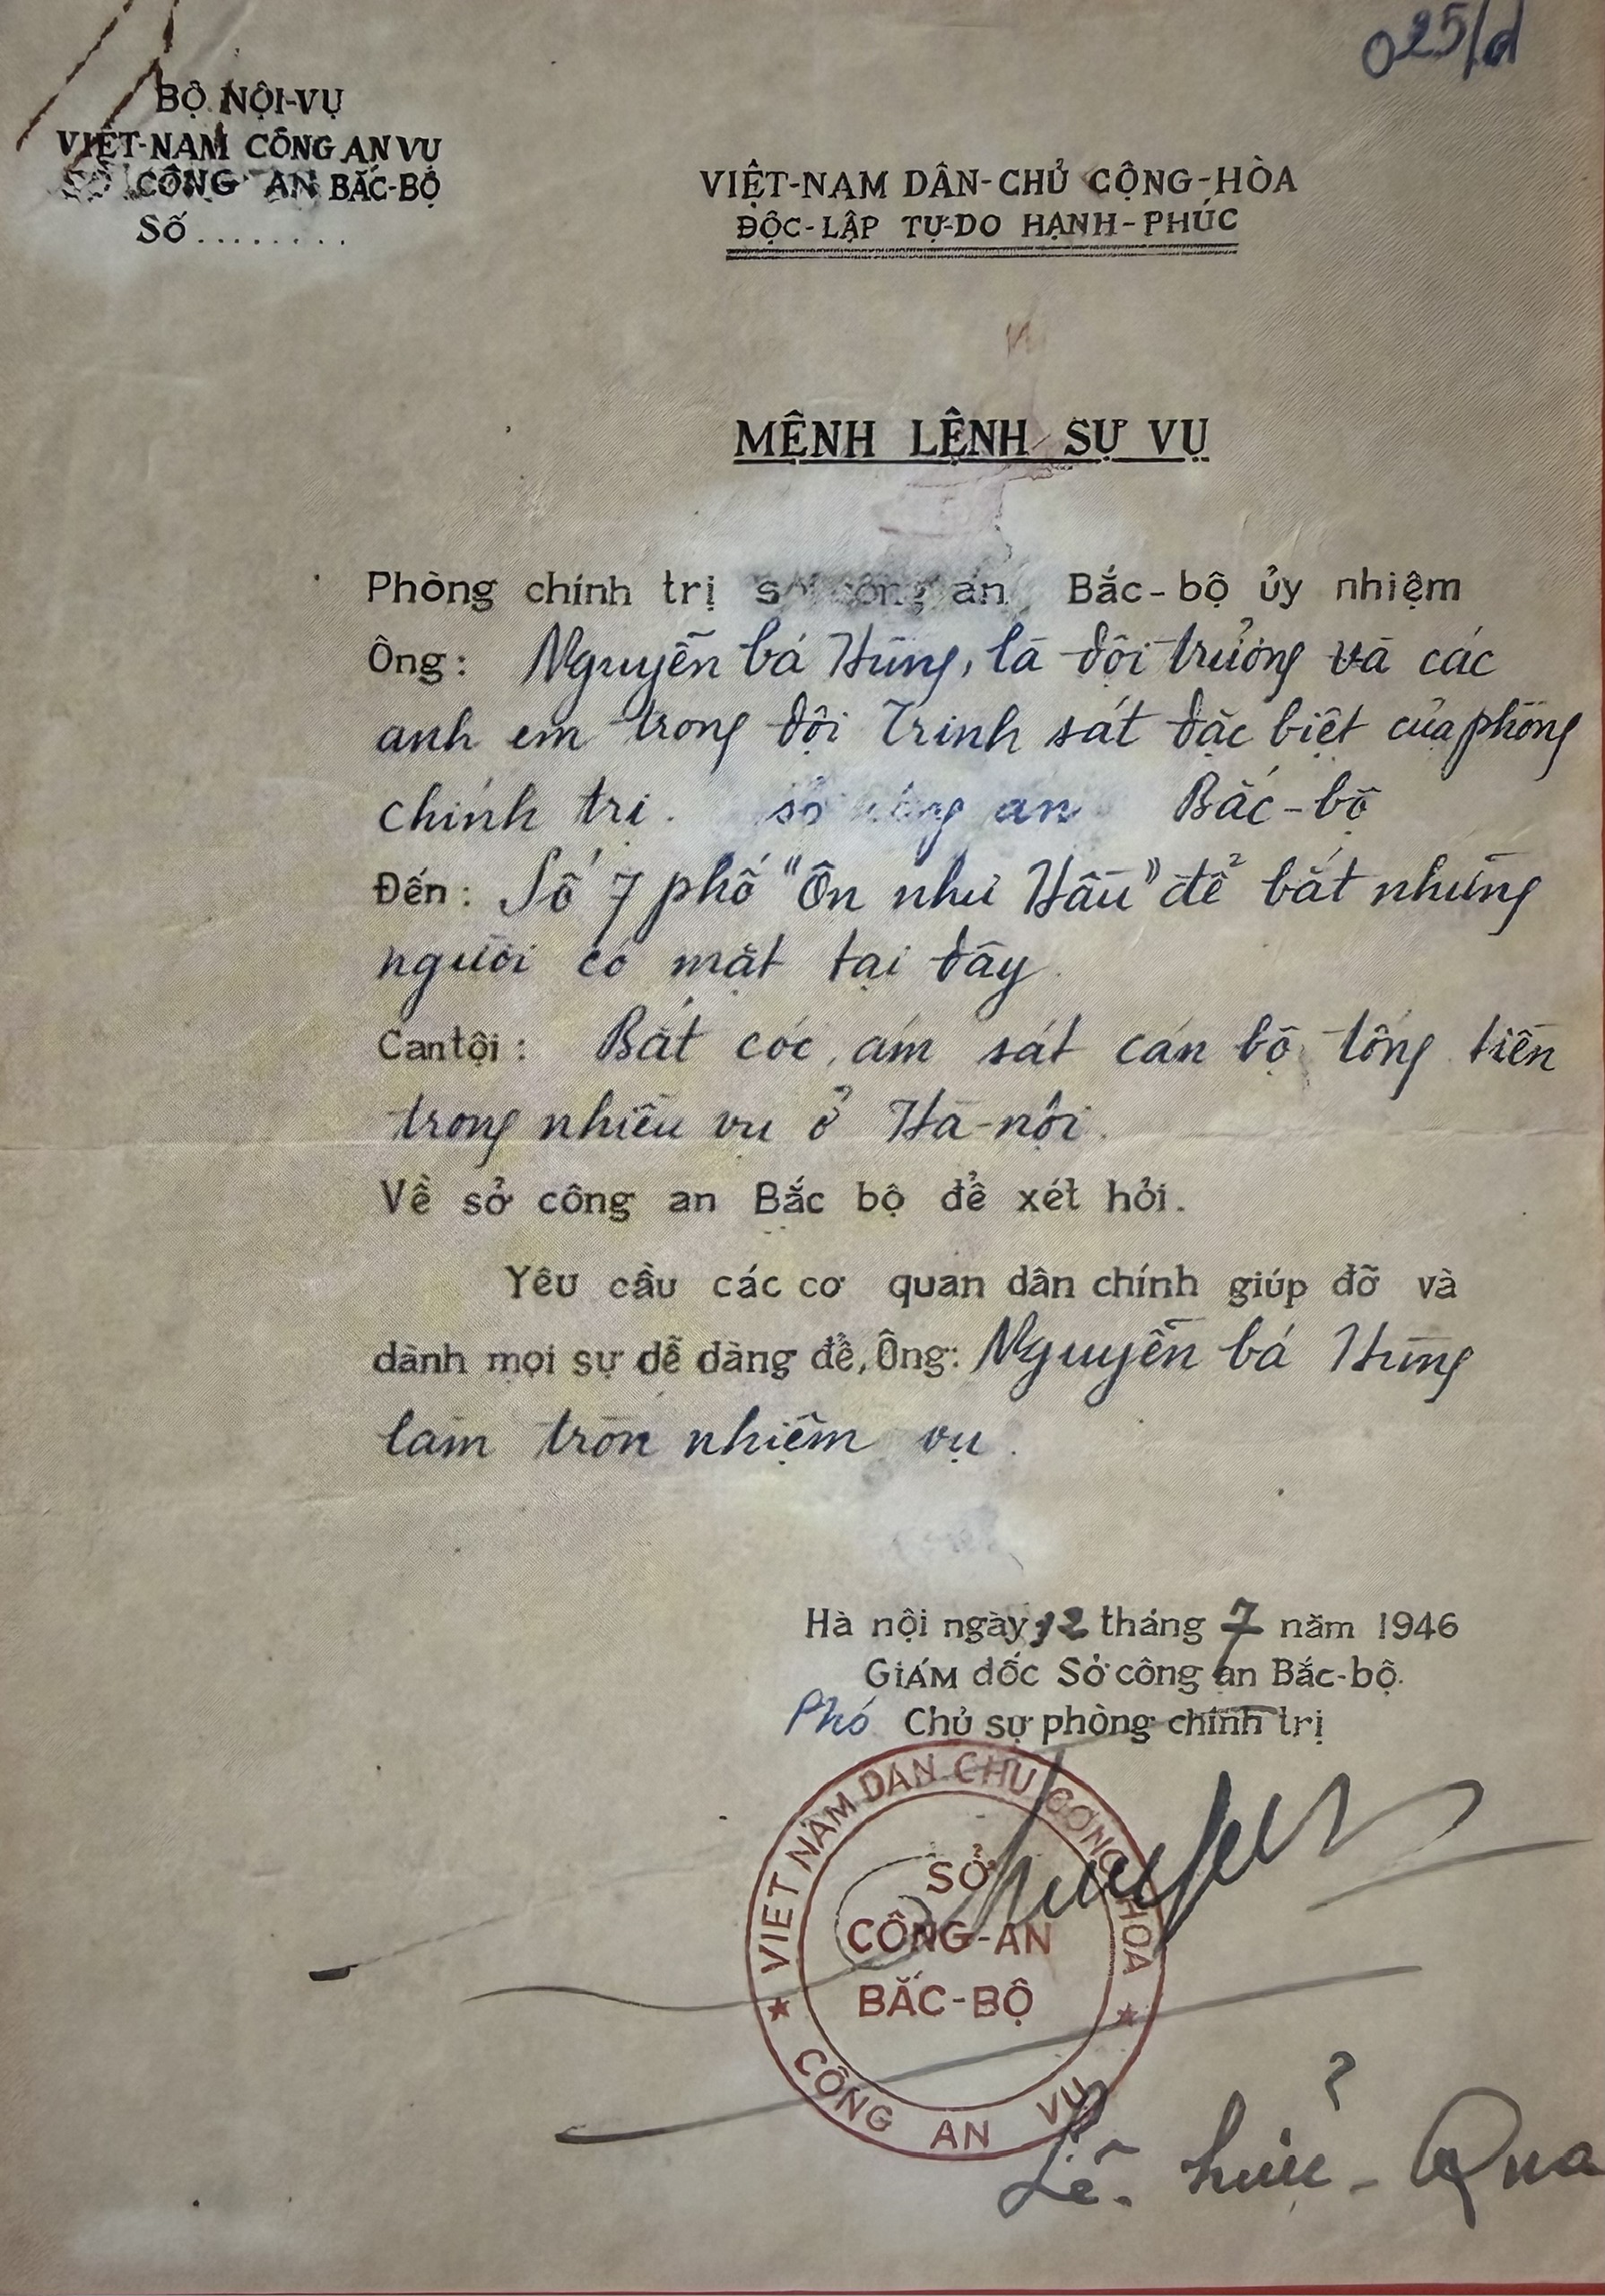 025/đ
BỘ NỘI-VỤ
VIỆT-NAM CÔNG AN VỤ
SỞ CÔNG AN BẮC-BỘ
Số........
VIỆT-NAM DÂN-CHỦ CỘNG-HÒA
ĐỘC-LẬP TỰ-DO HẠNH-PHÚC
MỆNH LỆNH SỰ VỤ
Phòng chính trị sở công an Bắc-bộ ủy nhiệm
Ông: Nguyễn bá Hùng, là đội trưởng và các
anh em trong đội Trinh sát đặc biệt của phòng
chính trị. sở công an Bắc-bộ
Đến: Số 7 phố "Ôn như Hầu" để bắt những
người có mặt tại đây.
Can tội: Bắt cóc, ám sát cán bộ, tống tiền
trong nhiều vụ ở Hà-nội.
Về sở công an Bắc bộ để xét hỏi.
Yêu cầu các cơ quan dân chính giúp đỡ và
dành mọi sự dễ dàng để, Ông: Nguyễn bá Hùng
làm tròn nhiệm vụ.
Hà nội ngày 12 tháng 7 năm 1946
GIÁM đốc Sở công an Bắc-bộ.
Phó Chủ sự phòng chính trị
VIỆT NAM DÂN CHỦ CỘNG HÒA
SỞ
CÔNG-AN
BẮC-BỘ
★ CÔNG AN VỤ ★
Lê - hữu - Qua